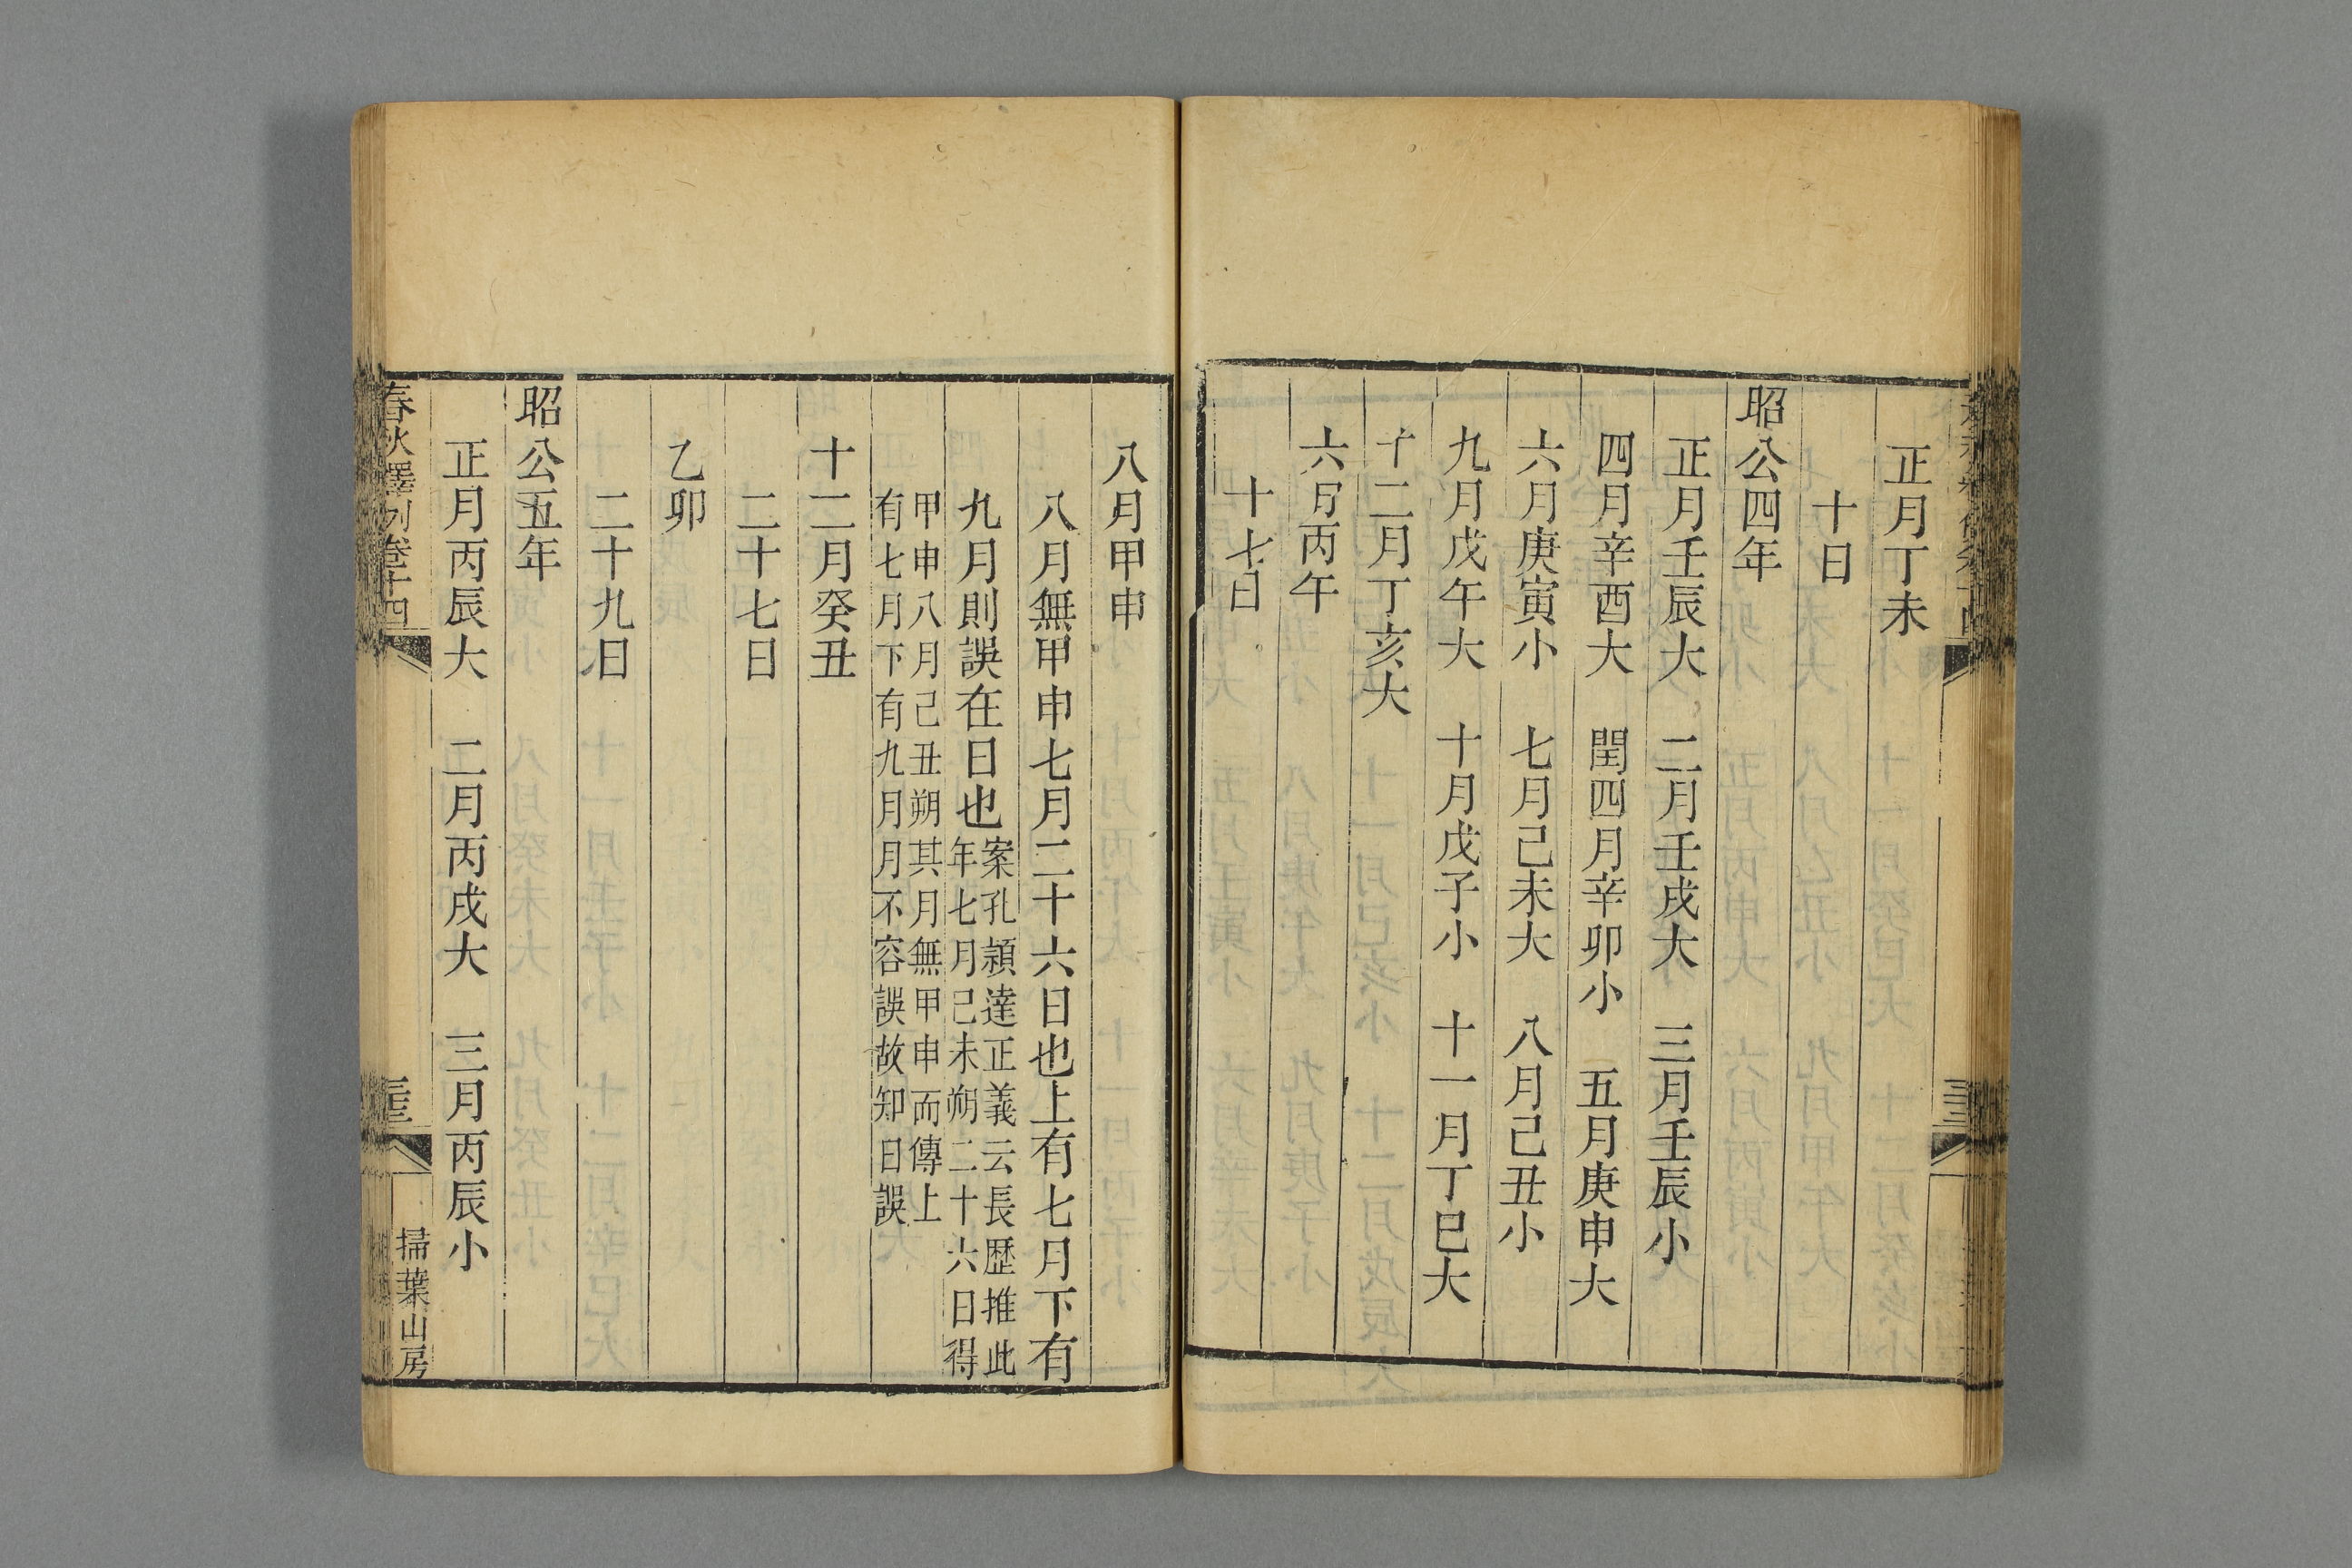 正月丁未
十日
昭公四年
正月壬辰大　二月壬戌大　三月壬辰小
四月辛酉大　閏四月辛卯小　五月庚申大
六月庚寅小　七月己未大　八月己丑小
九月戊午大　十月戊子小　十一月丁巳大
十二月丁亥大
六月丙午
十七日
八月甲申
八月無甲申七月二十六日也上有七月下有
九月則誤在日也
案孔穎達正義云長歷推此
年七月己未朔二十六日得
甲申八月己丑朔其月無甲申而傳上
有七月下有九月月不容誤故知日誤
十二月癸丑
二十七日
乙卯
二十九日
昭公五年
正月丙辰大　二月丙戌大　三月丙辰小
春秋釋例卷十四
掃葉山房